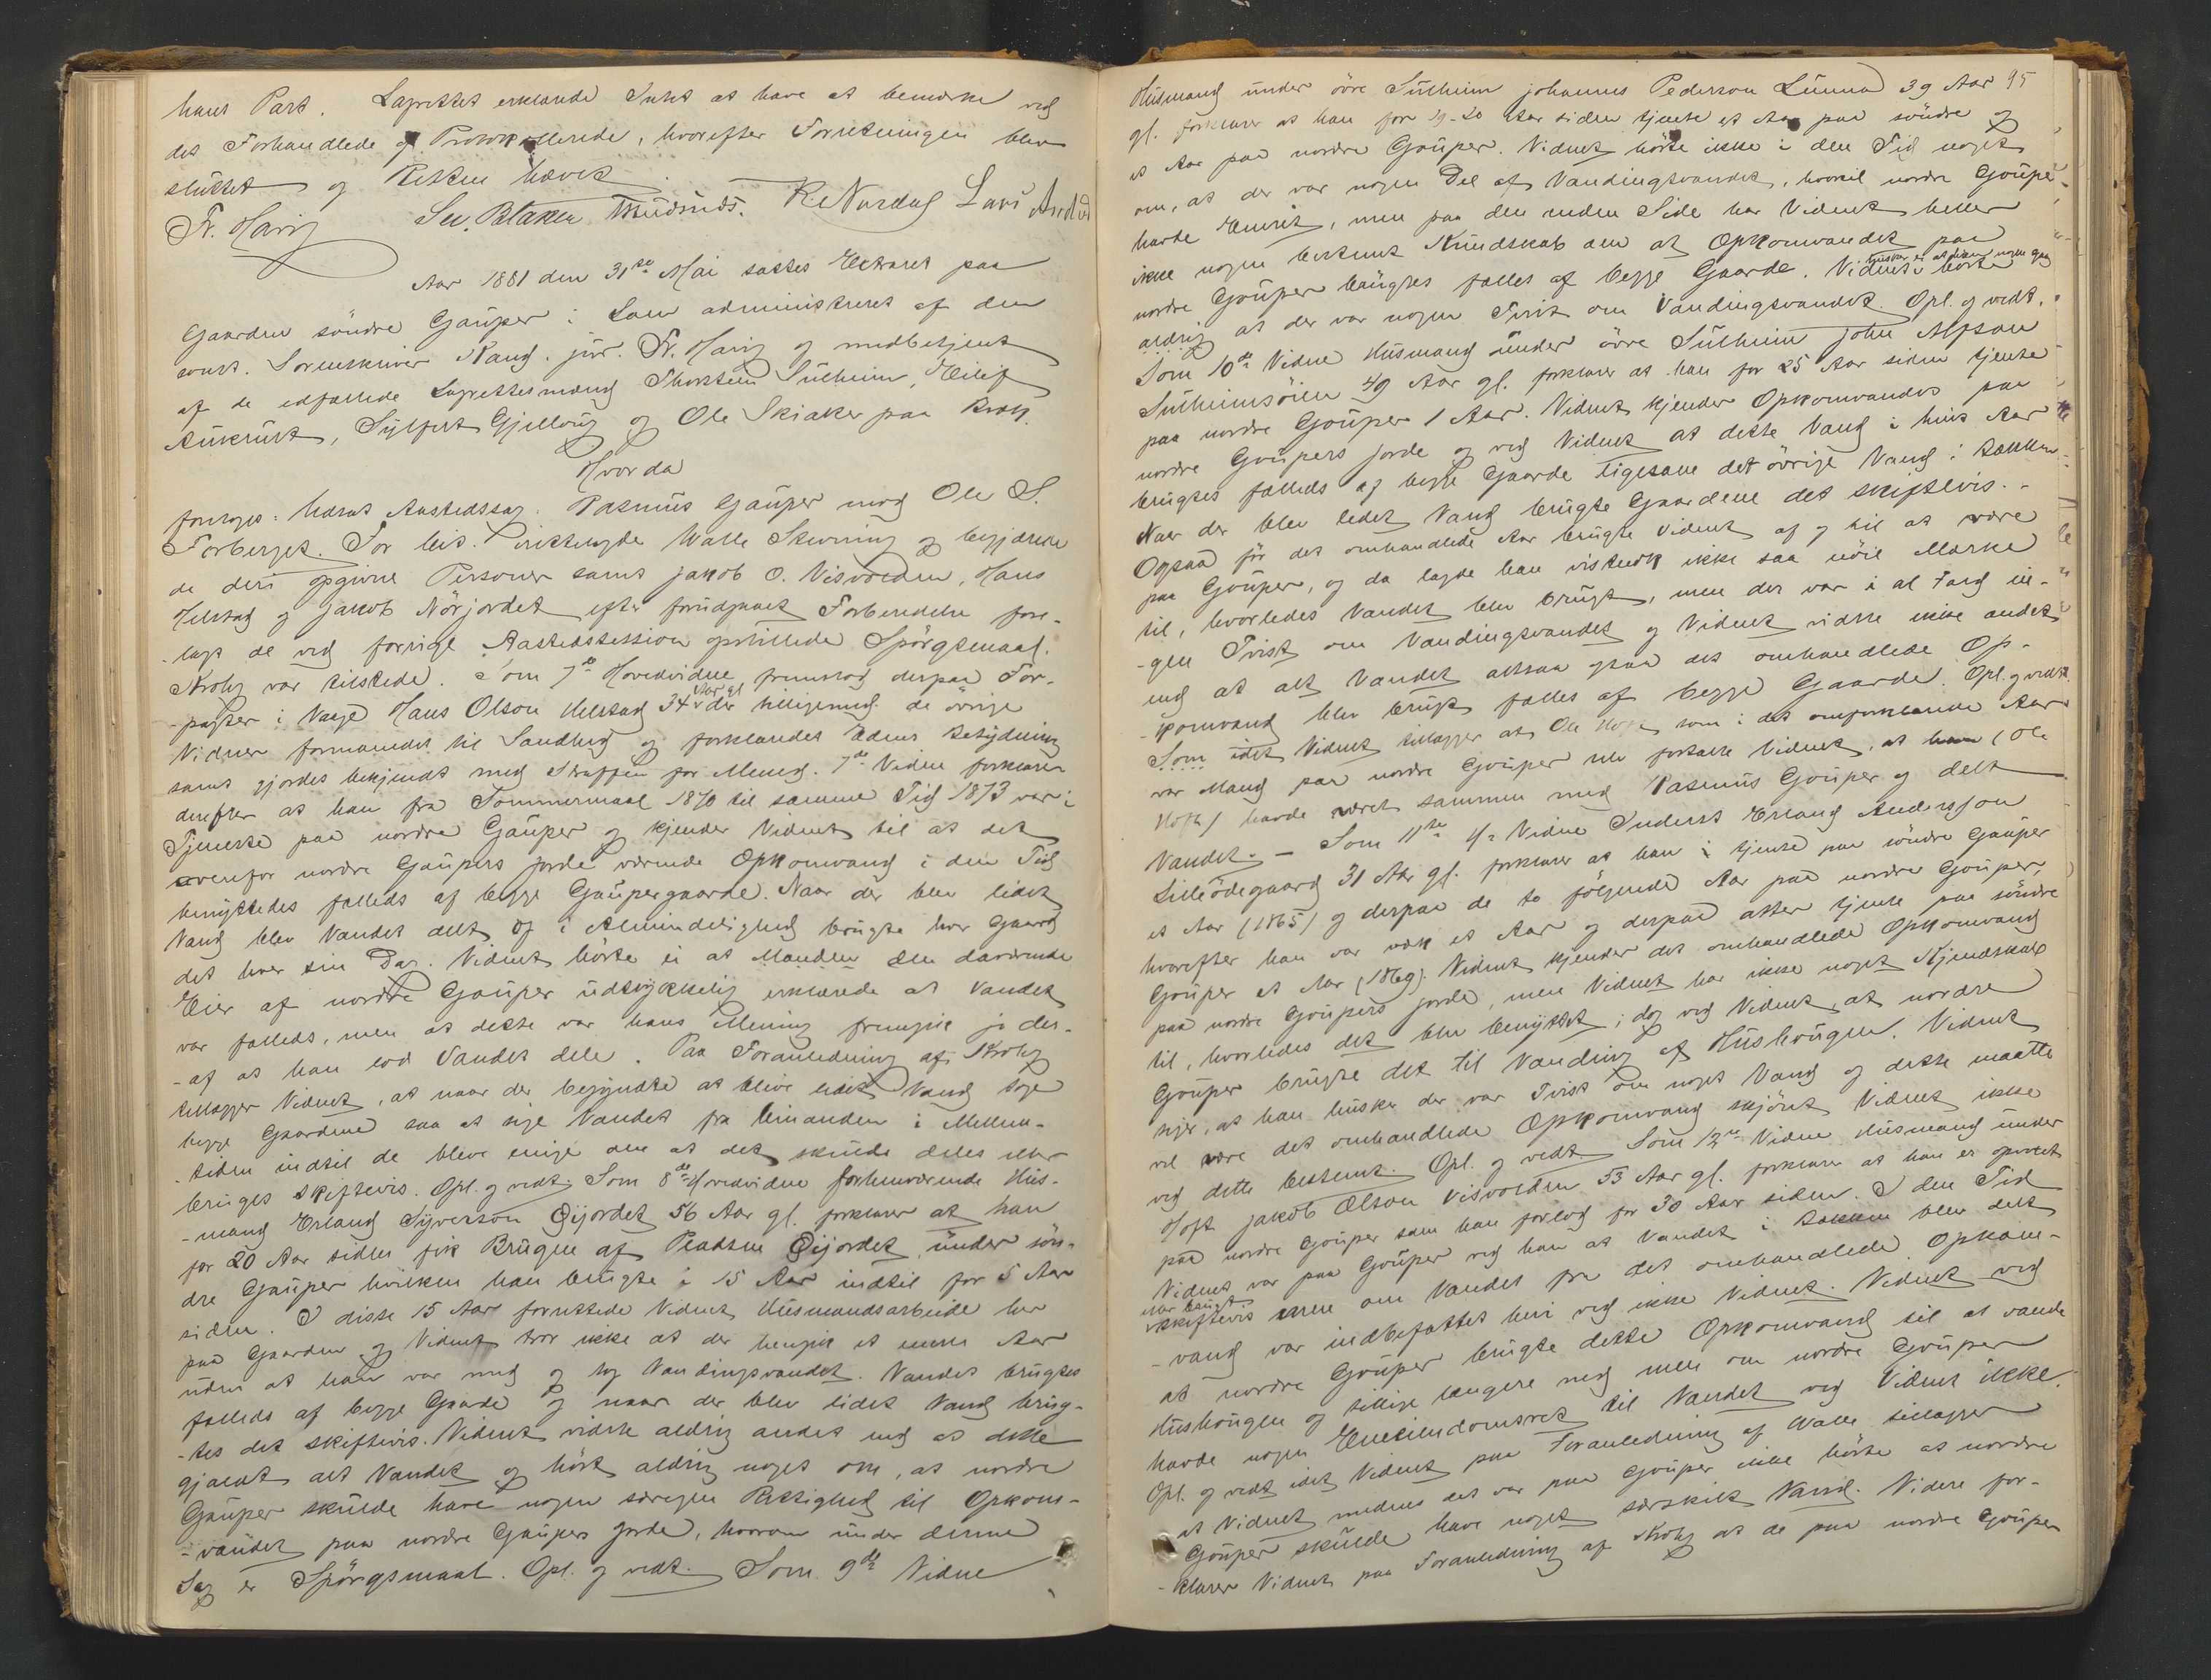 hans Part. Lagrettet erklærede Intet at have at bemærke ved
det Forhandlede og Protokollerede, hvorefter Forretningen blev
sluttet og Retten hævet.
Fr. Harig Sev. Blaker R Nordal
Aar 1881 den 31te Mai sattes Extraret paa
Gaarden söndre Gaüper i Lom administreret af den
const. Sorenskriver Kand. jür. Fr. Harig og medbetjent
af de edfæstede Lagrettesmænd Thorstein Sülheim, Eilif
Aükrüst, Syver Gjelloüg og Ole Skiaker paa Krok.
Hvorda
foretoges: Udsat Aastedssag. Rasmüs Gaüper mod Ole S.
Forberget. For Cit. irettelagde Walle Stevning og begjærede
de deri opgivne Personer samt jakob O. Visvolden, Hans
Melstad og jakob Nörjordet efter forüdgaaet Forberedelse fore-
-lagt de ved forrige Aastedssession opstillede Spörgsmaal.
Krohg var tilstede. Som 7de Hovedvidne fremstod derpaa For-
-pagter i Vaage Hans Olson Melstad 34 Aar gl. der tilligemed de övrige
Vidner formanedes til Sandhed og forklaredes Edens Betydning
samt gjordes bekjendt med Straffen for Mened. 7de Vidne forklarer
derefter at han fra Sommermaal 1870 til samme Tid 1873 var i
Tjeneste paa nordre Gaüper og kjender Vidnet til at det
ovenfor nordre Gaüpers jorde værende Opkomvand i den Tid
benyttedes fælleds af begge Gaüpergaarde. Naar der blev lidet
Vand blev Vandet delt og i Almindelighed brügte hver Gaard
det hver sin Dag. Vidnet hörte ei at Manden den daværende
Eier af nordre Gaüper üdtrykkelig erklærede at Vandet
var fælleds, men at dette var hans Mening fremgik jo der-
-af at han lod Vandet dele. Paa Foranledning af Krohg
tillægger Vidnet, at naar der begyndte at blive lidet Vand tog
begge Gaardene saa at sige Vandet fra hinanden i Mellem-
-tiden indtil de bleve enige om at det skülde deles eller
brüges skiftevis. Opl. og vedt. Som 8de Hovedvidne forhenværende Hüs-
-mand Erland Syverson Öijordet 56 Aar gl. forklarer at han
for 20 Aar siden fik Brügen af Pladsen Öijordet ünder sön-
dre Gaüper hvilken han brügte i 15 Aar indtil for 5 Aar
siden. I disse 15 Aar forrettede Vidnet Hüsmandsarbeide her
paa Gaarden og Vidnet tror ikke at der hengik et eneste Aar
üden at han var med og tog Vandingsvandet. Vandet brügtes
fælleds af begge Gaarde og naar der blev lidet Vand brüg-
-tes det skiftevis. Vidnet vidste aldrig andet end at dette
gjaldt alt Vandet og hört aldrig noget om, at nordre
Gaüper skülde have nogen særegen Rettighed til Opkom-
-vandet paa nordre Gaüpers jorde, hvorom ünder denne
Sag er Spörgsmaal. Opl. og vedt. Som 9de Vidne
Hüsmand ünder övre Sülheim johannes Pederson Lünna 39 Aar 95
gl. forklarer at han for 19-20 Aar siden tjente et Aar paa söndre og
et Aar paa nordre Goüper. Vidnet hörte ikke i den Tid noget
om, at der var nogen Del af Vandingsvandet, hvortil nordre Goüper
havde Eneret, men paa den anden Side har Vidnet heller
ikke nogen bestemt Kündskab om at Opkomvandet paa
nordre Goüper brügtes fælles af begge Gaarde. Vidnet husker ei at have nogen Gang hörte
aldrig at der var nogen Tvist om Vandingsvandet. Opl. og vedt.
Som 10de Vidne Hüsmand ünder övre Sülheim john Alfson
Sülheimsöien 49 Aar gl. forklarer at han for 25 Aar siden tjente
paa nordre Goüper 1 Aar. Vidnet kjender Opkomvandet paa
nordre Goüpers jorde og ved Vidnet at dette Vand i hint Aar
brügtes fælleds af begge Gaarde ligesom det övrige Vand i Bækken.
Naar der blev lidet Vand brügte Gaardene det skiftevis.-
Ogsaa för det omhandlede Aar brügte Vidnet af og til at være
paa Goüper, og da lagde han vistnok ikke saa nöie Mærke
til, hvorledes Vandet blev brügt, men der var i al Fald in-
-gen Tvist om Vandingsvandet og Vidnet vidste ikke andet
end at alt Vandet altsaa ogsaa det omhandlede Op-
-komvand blev brügt fælles af begge Gaarde. Opl. og vedt.
Som idet Vidnet tillægger at Ole Hoft som i det omforklarede Aar
var Mand paa nordre Goüper selv fortalte Vidnet, at han (Ole
Hoft) havde været sammen med Rasmüs Goüper og delt
Vandet. - Som 11te Vidne Inderst Erland Andersson
Lilleödegaard 31 Aar gl. forklarer at han i tjente paa söndre Gaüper
et Aar (1865) og derpaa de to fölgende Aar paa nordre Goüper,
hvorefter han var væk et Aar og derpaa atter tjente paa söndre
Goüper et Aar (1869). Vidnet kjender det omhandlede Opkomvand
paa nordre Goüpers jorde, men Vidnet har ikke noget Kjendskab
til, hvorledes det blev benyttet; dog ved Vidnet, at nordre
Goüper brügte det til Vanding af Hüshoügen. Vidnet
siger, at han husker der var Tvist om noget Vand og dette maatte
vel være det omhandlede Opkomvand skjönt Vidnet ikke
ved dette bestemt. Opl. og vedt. Som 12te Vidne Hüsmand ünder
Hoft jakob Olson Visvolden 53 Aar gl. forklarer at han er opvoxet
paa nordre Goüper som han forlod for 30 Aar siden. I den Tid
Vidnet var paa Goüper ved han at Vandet i Bækken blev delt
eller brügt
skiftevis men om Vandet fra det omhandlede Opkom-
-vand var indbefattet heri ved ikke Vidnet. Vidnet ved
at nordre Goüper brügte dette Opkomvand til at vande
Hüshoügen og tillige længere ned men om nordre Goüper
havde nogen Eneeiendomsret til Vandet ved Vidnet ikke.
Opl. og vedt. idet Vidnet paa Foranledning af Walle tillægger
at Vidnet medens det var paa Goüper ikke hörte at nordre
Goüper skülde have noget særskilt Vand. Videre for-
-klarer Vidnet paa Foranledning af Krohg at de paa nordre Goüper